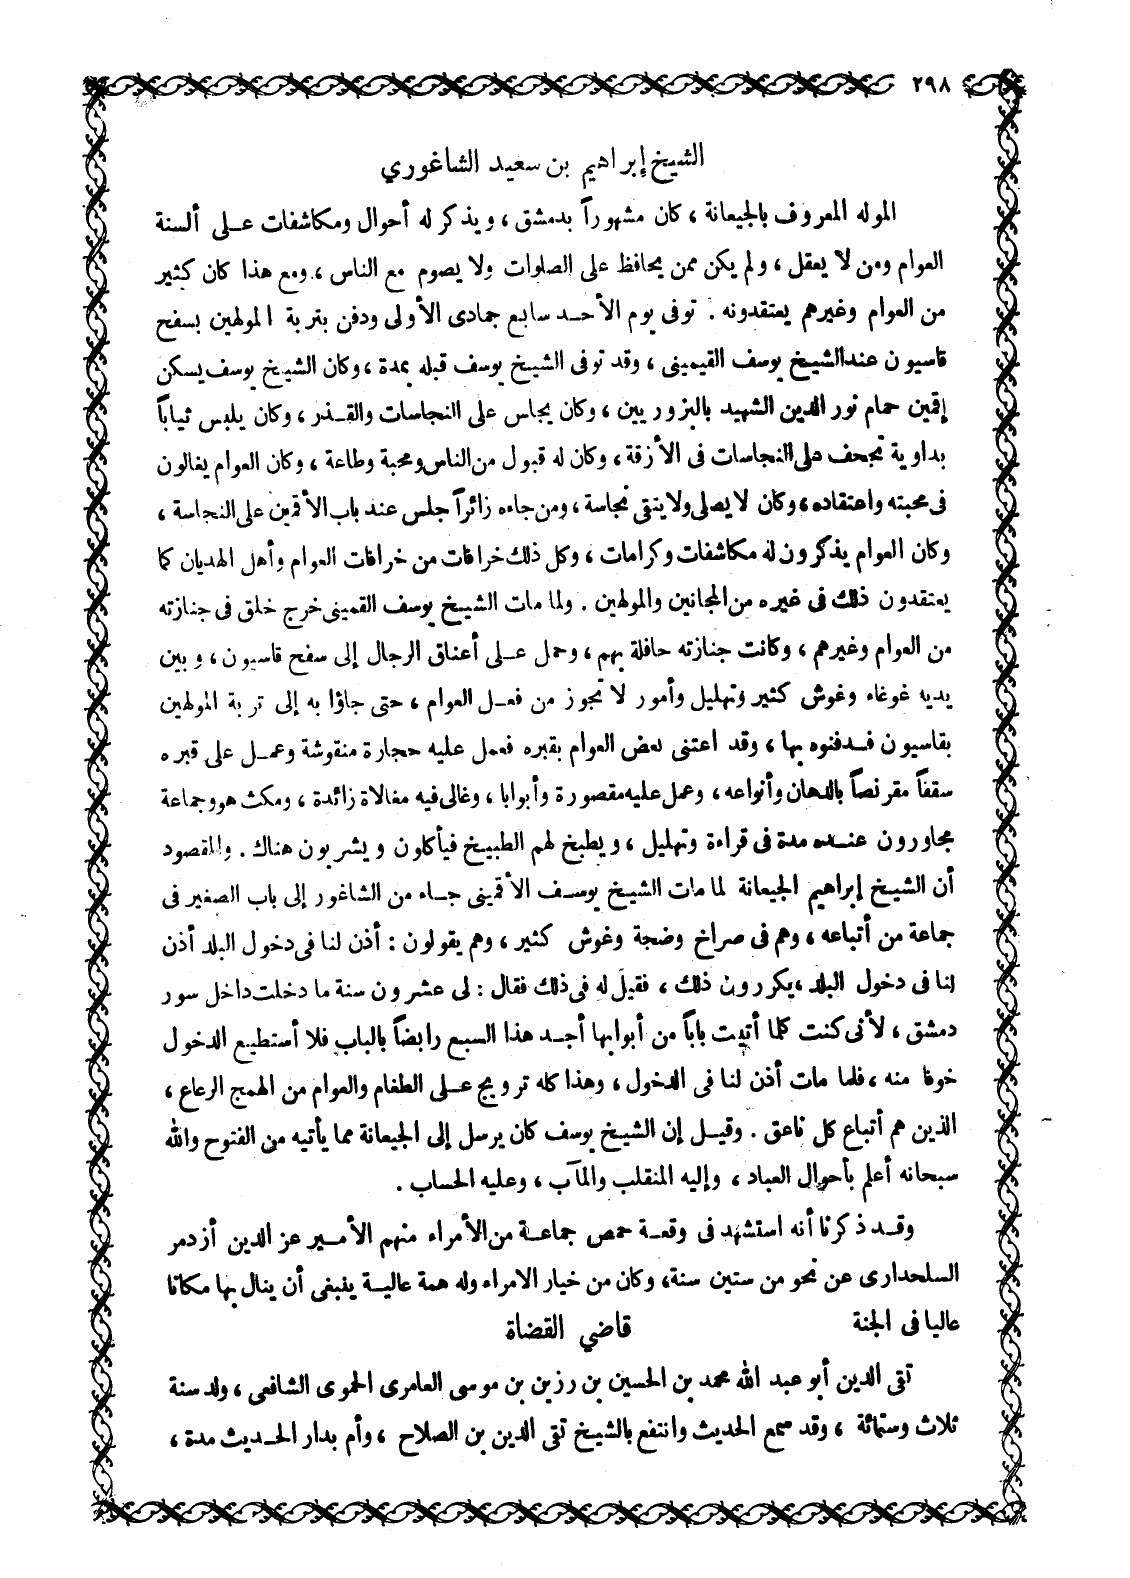 ٢٩٨
الشيخ إبراهيم بن سعيد الشاغوري
الموله المعروف بالجيعانة ، كان مشهوراً بدمشق ، ويذكر له أحوال ومكاشفات على ألسنة
العوام ومن لا يعقل ، ولم يكن ممن يحافظ على الصلوات ولا يصوم مع الناس ، ومع هذا كان كثير
من العوام وغيرهم يعتقدونه . توفى يوم الأحد سابع جمادى الأولى ودفن بتربة المولهين بسفح
قاسيون عند الشيخ يوسف القيمينى ، وقد توفى الشيخ يوسف قبله بمدة ، وكان الشيخ يوسف يسكن
إقمين حمام نور الدين الشهيد بالبزوريين ، وكان يجلس على النجاسات والقذر ، وكان يلبس ثياباً
بداوية تجحف على النجاسات فى الأزقة ، وكان له قبول من الناس ومحبة وطاعة ، وكان العوام يغالون
فى محبته واعتقاده ، وكان لا يصلى ولا يتقى نجاسة ، ومن جاءه زائراً جلس عند باب الأقمين على النجاسة ،
وكان العوام يذكرون له مكاشفات وكرامات ، وكل ذلك خرافات من خرافات العوام وأهل الهديان كما
يعتقدون ذلك فى غيره من المجانين والمولهين . ولما مات الشيخ يوسف القمينى خرج خلق فى جنازته
من العوام وغيرهم ، وكانت جنازته حافلة بهم ، وحمل على أعناق الرجال إلى سفح قاسيون ، وبين
يديه غوغاء وغوش كثير وتهليل وأمور لا تجوز من فعل العوام ، حتى جاؤا به إلى تربة المولهين
بقاسيون فدفنوه بها ، وقد اعتنى بعض العوام بقبره فعمل عليه حجارة منقوشة وعمل على قبره
سقفاً مقرنصاً بالدهان وأنواعه ، وعمل عليه مقصورة وأبوابا ، وغالى فيه مغالاة زائدة ، ومكث هو وجماعة
مجاورون عنده مدة فى قراءة وتهليل ، ويطبخ لهم الطبيخ فيأكلون ويشربون هناك . والمقصود
أن الشيخ إبراهيم الجيعانة لما مات الشيخ يوسف الأقمينى جاء من الشاغور إلى باب الصغير فى
جماعة من أتباعه ، وهم فى صراخ وضجة وغوش كثير ، وهم يقولون : أذن لنا فى دخول البلد أذن
لنا فى دخول البلد ، يكررون ذلك ، فقيل له فى ذلك فقال : لى عشرون سنة ما دخلت داخل سور
دمشق ، لأنى كنت كلما أتيت باباً من أبوابها أجد هذا السبع رابضاً بالباب فلا أستطيع الدخول
خوفا منه ، فلما مات أذن لنا فى الدخول ، وهذا كله ترويج على الطغام والعوام من الهمج الرعاع ،
الذين هم أتباع كل ناعق . وقيل إن الشيخ يوسف كان يرسل إلى الجيعانة مما يأتيه من الفتوح والله
سبحانه أعلم بأحوال العباد ، وإليه المنقلب والمآب ، وعليه الحساب .
وقد ذكرنا أنه استشهد فى وقعة حمص جماعة من الأمراء منهم الأمير عز الدين أزدمر
السلحدارى عن نحو من ستين سنة ، وكان من خيار الامراء وله همة عالية ينبغى أن ينال بها مكانا
عاليا فى الجنة
قاضي القضاة
تقى الدين أبو عبد الله محمد بن الحسين بن رزين بن موسى العامرى الحموى الشافعى ، ولد سنة
ثلاث وستمائة ، وقد سمع الحديث وانتفع بالشيخ تقى الدين بن الصلاح ، وأم بدار الحديث مدة ،